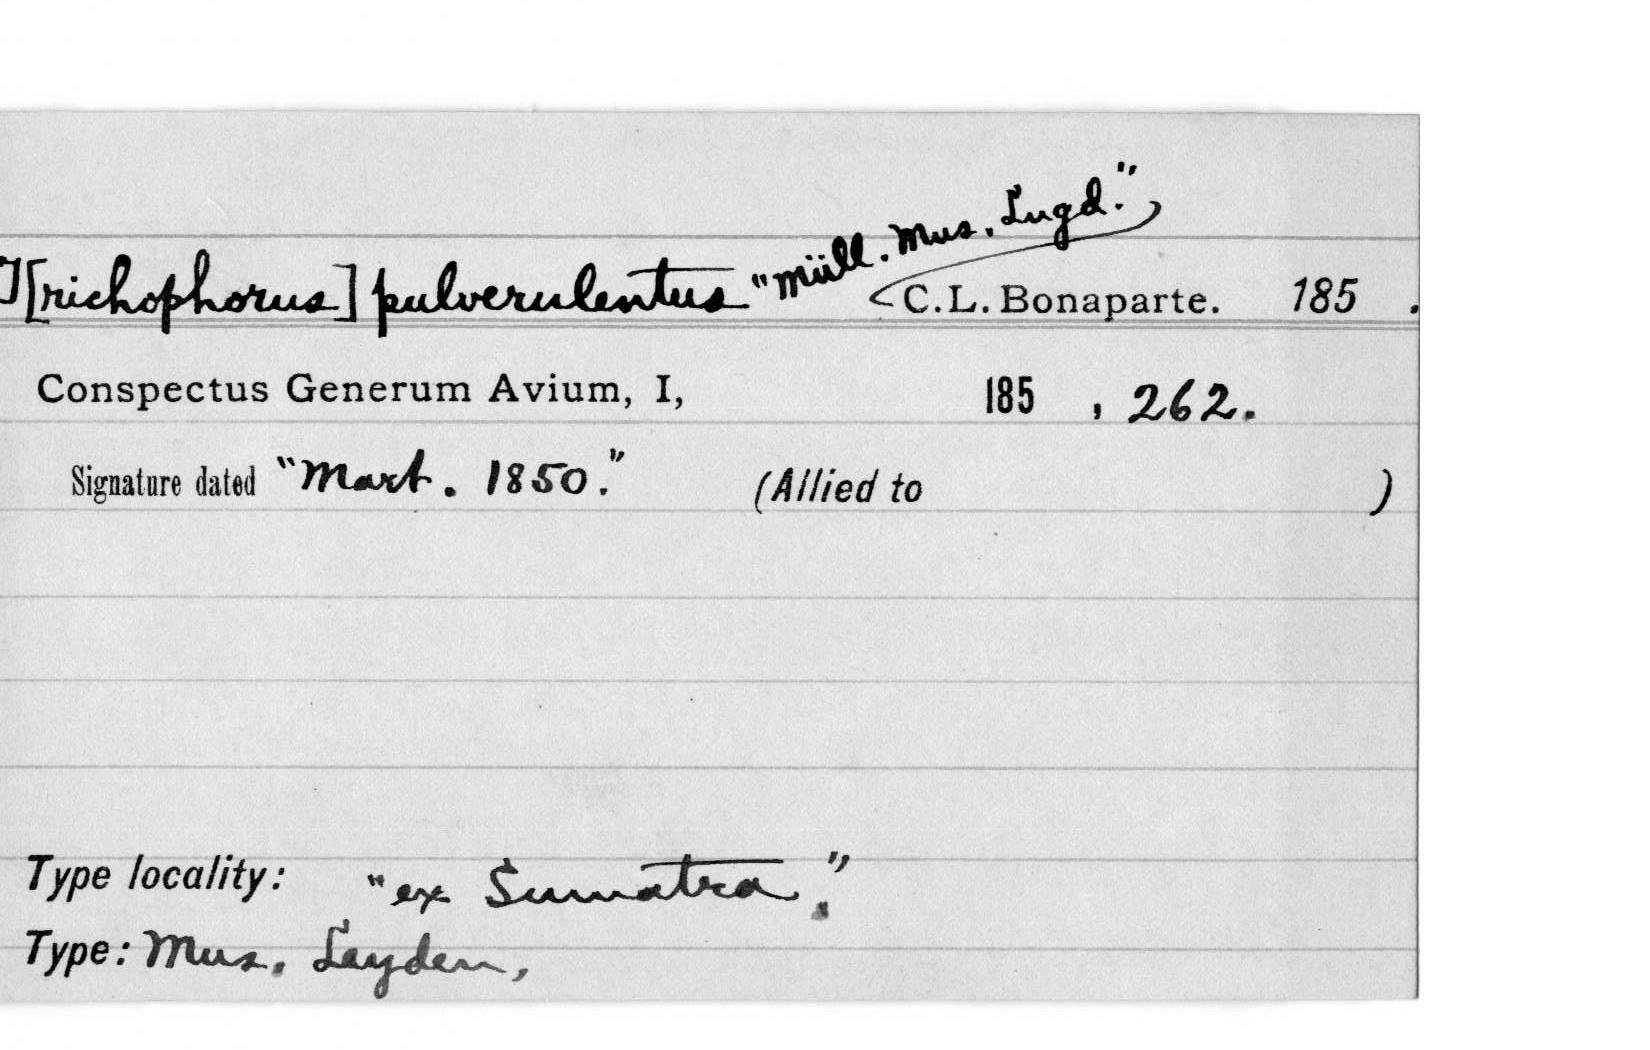 T[richophorus] pulverulentus "Müll. Mus. Lugd."
C.L. Bonaparte. 185 .
Conspectus Generum Avium, I, 185 , 262.
Signature dated "Mart. 1850." (Allied to )
Type locality: "ex Sumatra."
Type: Mus. Leyden,